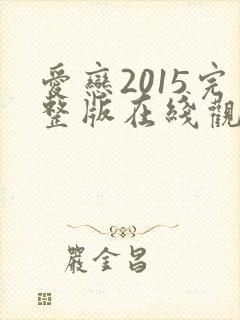 愛戀2015完
整版在綫觀
嚴金昌